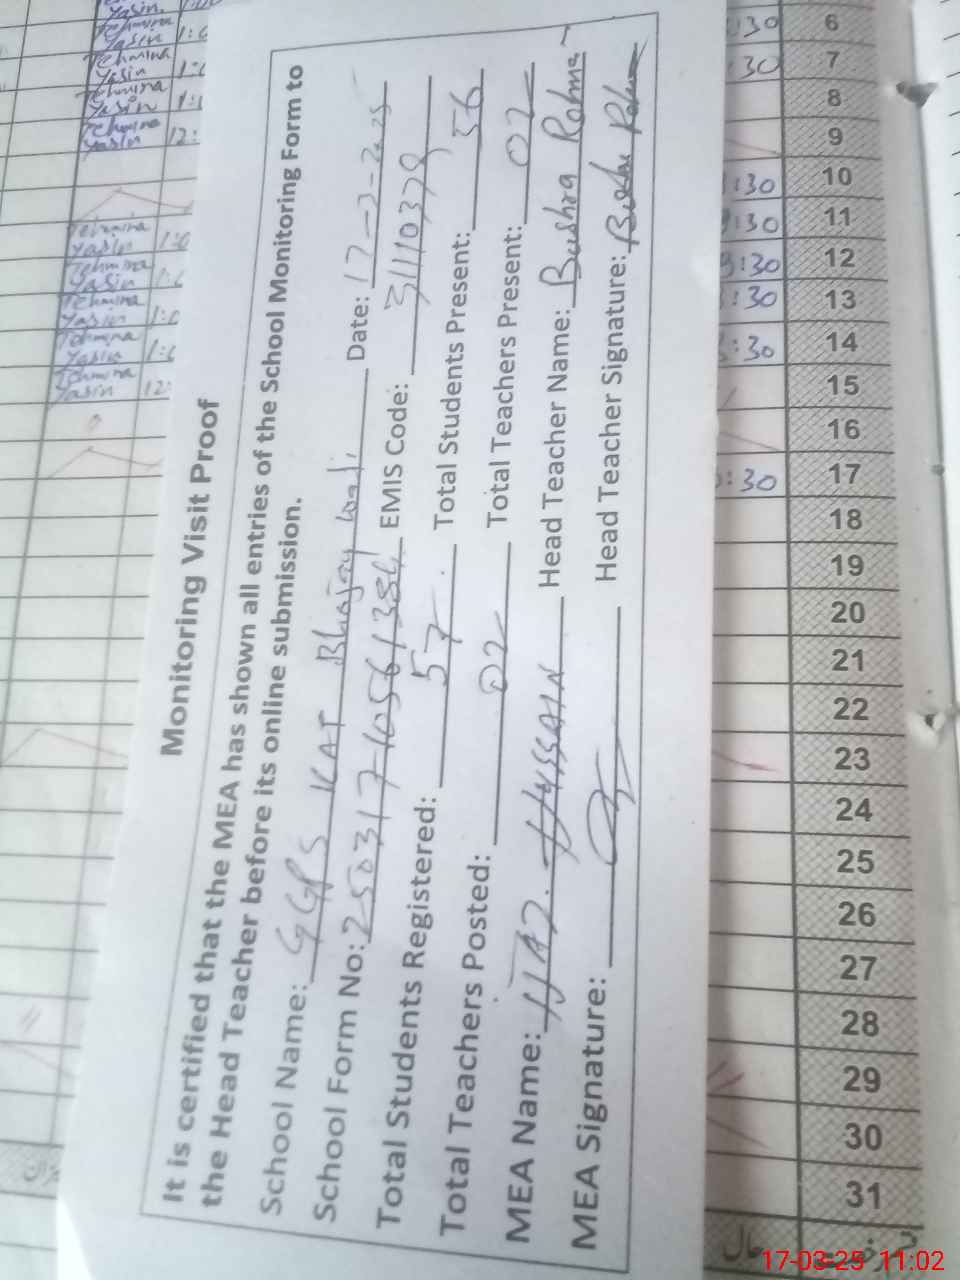 Monitoring Visit Proof
It is certified that the MEA has shown all entries of the School Monitoring Form to
the Head Teacher before its online submission.
School Name: GGPS KAT Bhajay wali Date: 17-3-2025
School Form No: 250317-1056 EMIS Code: 31110379
Total Students Registered: 57 Total Students Present: 56
Total Teachers Posted: 02 Total Teachers Present: 02
MEA Name: IJAZ. HASSAN Head Teacher Name: Bushra Rahman
MEA Signature: Head Teacher Signature: Bushra Rahman
Tehmina
Yasin
Tehmina
Yasin
Tehmina
Yasin
Tehmina
Yasin 12:
Tehmina
Yasin
Tehmina
Yasin
Tehmina
Yasin
Tehmina
Yasin
Tehmina
Yasin 12:
:30 6
30 7
8
9
:30 10
:30 11
:30 12
:30 13
:30 14
15
16
:30 17
18
19
20
21
22
23
24
25
26
27
28
29
30
31
17-03-25 11:02